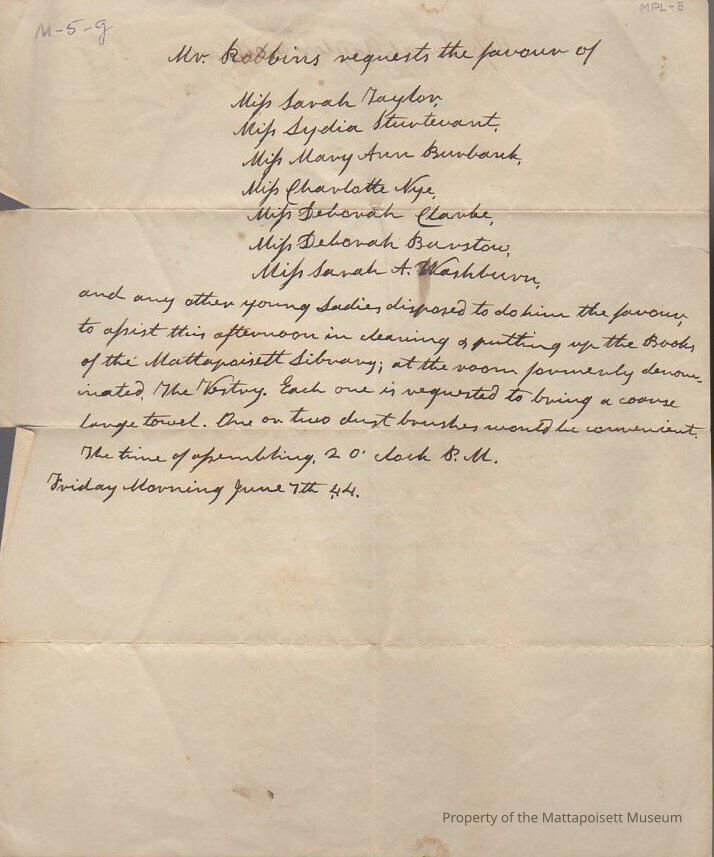 M-5-g
MPL-5
Mr. Robbins requests the favour of
Miss Sarah Taylor,
Miss Lydia Sturtevant,
Miss Mary Ann Burbank,
Miss Charlotte Nye,
Miss Deborah Clarke,
Miss Deborah Barstow,
Miss Sarah A. Washburn,
and any other young Ladies disposed to do him the favour,
to assist this afternoon in cleaning & putting up the Books
of the Mattapoisett Library; at the room formerly denom-
inated, The Vestry. Each one is requested to bring a coarse
large towel. One or two dust brushes would be convenient.
The time of assembling, 2 O' clock P.M.
Friday Morning June 7th 44.
Property of the Mattapoisett Museum